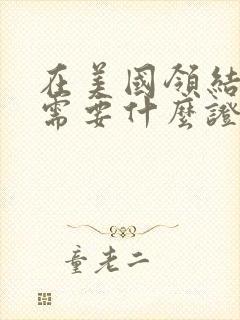 在美國領結
需要什麼證
童老二